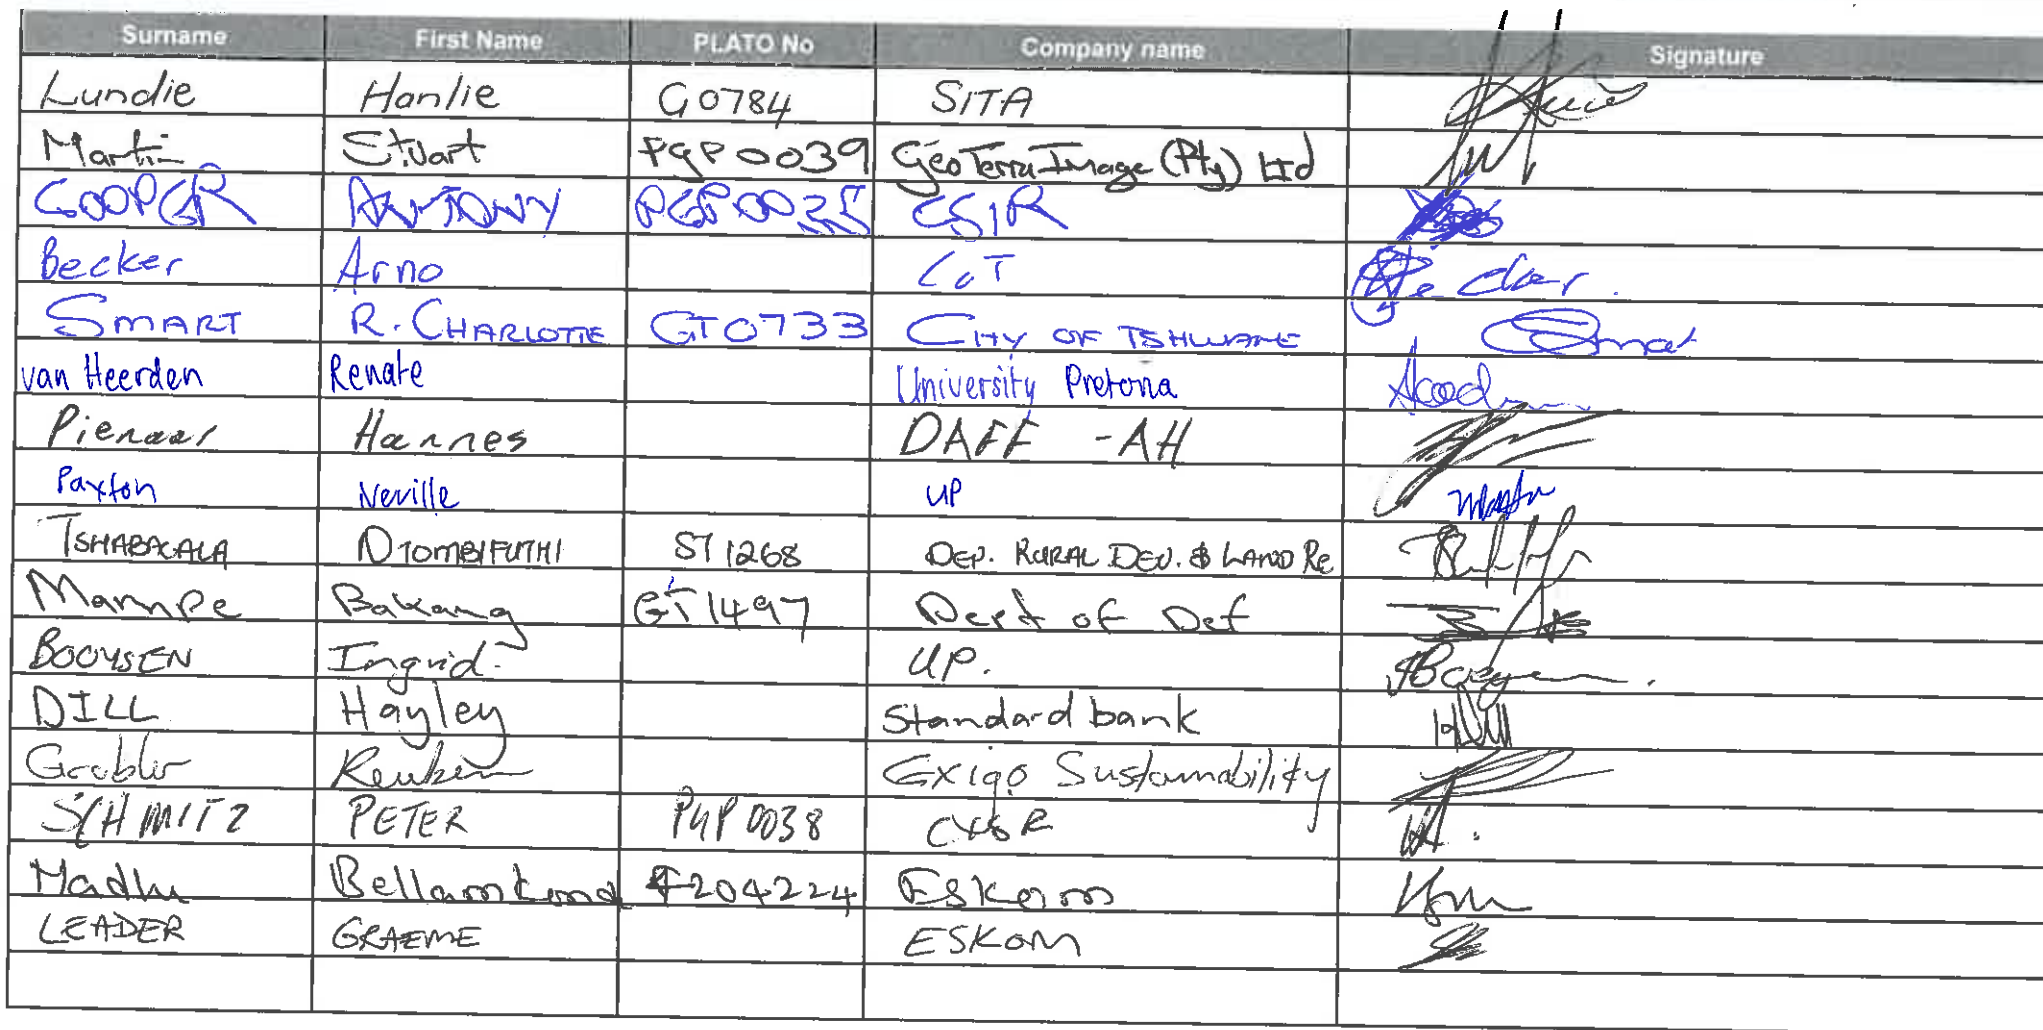 Surname First Name PLATO No Company name Signature
Lundie Hanlie G0784 SITA
Martin Stuart PGP0039 GeoTerraImage (Pty) Ltd
COOPER ANTONY CSIR
Becker Arno CoT
SMART R. CHARLOTTE GT0733 CITY OF TSHWANE
van Heerden Renate University Pretoria
Pienaar Hannes DAFF - AH
Paxton Neville UP
TSHABALALA NTOMBIFUTHI ST1268 DEP. RURAL DEV. & LAND Re
Mampe Bakang GT1497 Dept of Def
BOOYSEN Ingrid. UP.
DILL Hayley Standard bank
Grobler Reuben Exigo Sustainability
SCHMITZ PETER PGP0038 CSIR
Madhu Eskom
LEADER GRAEME ESKOM